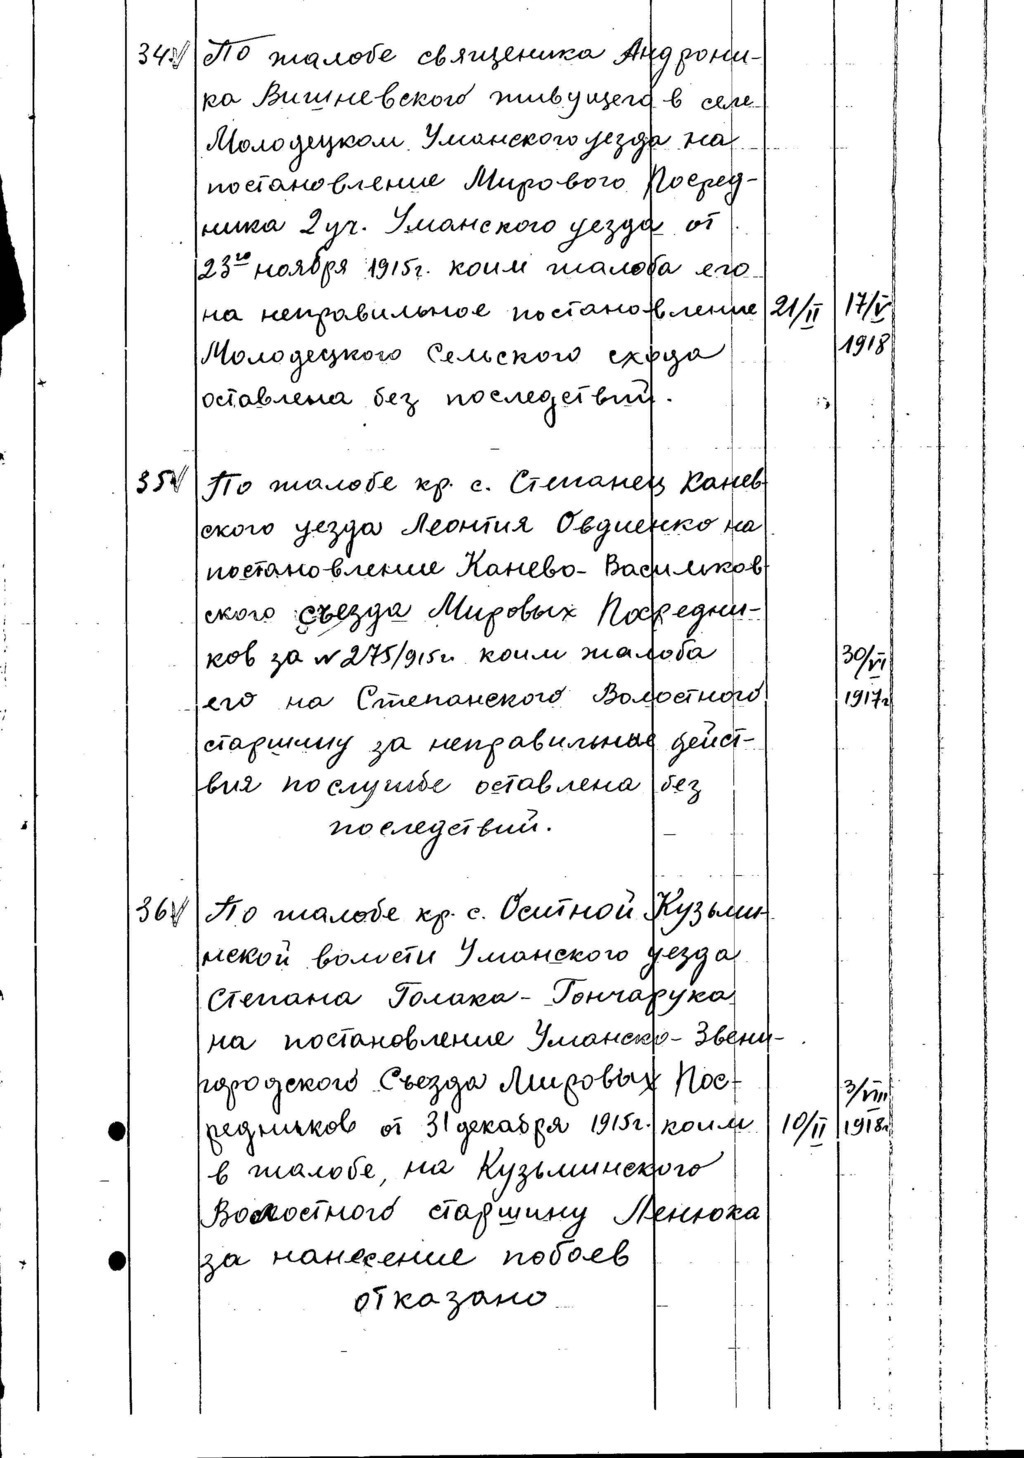 34. По жалобе священика Андрони-
ка Вишневского живущего в селе
Молодецком Уманского уезда на
постановление Мирового Посред-
ника 2 уч. Уманского уезда от
23го ноября 1915г. коим жалоба его
на неправильное постановление 21/II 17/V
Молодецкого Сельского схода 1918
оставлена без последствий.
35 По жалобе кр. с. Степанец Канев-
ского уезда Леонтия Овдиенко на
постановление Канево-Васильков-
ского съезда Мировых Посредни-
ков за № 275/915г. коим жалоба 30/VI
его на Степанского Волостного 1917г
старшину за неправильные дейст-
вия по службе оставлена без
последствий.
36 По жалобе кр. с. Оситной Кузьмин-
нской волости Уманского уезда
Степана Голака-Гончарука
на постановление Уманско-Звени-
городского Съезда Мировых Пос- 3/VIII
редников от 31 декабря 1915г. коим 10/II 1918г
в жалобе, на Кузьминского
Волостного старшину Ленюка
за нанесение побоев
отказано